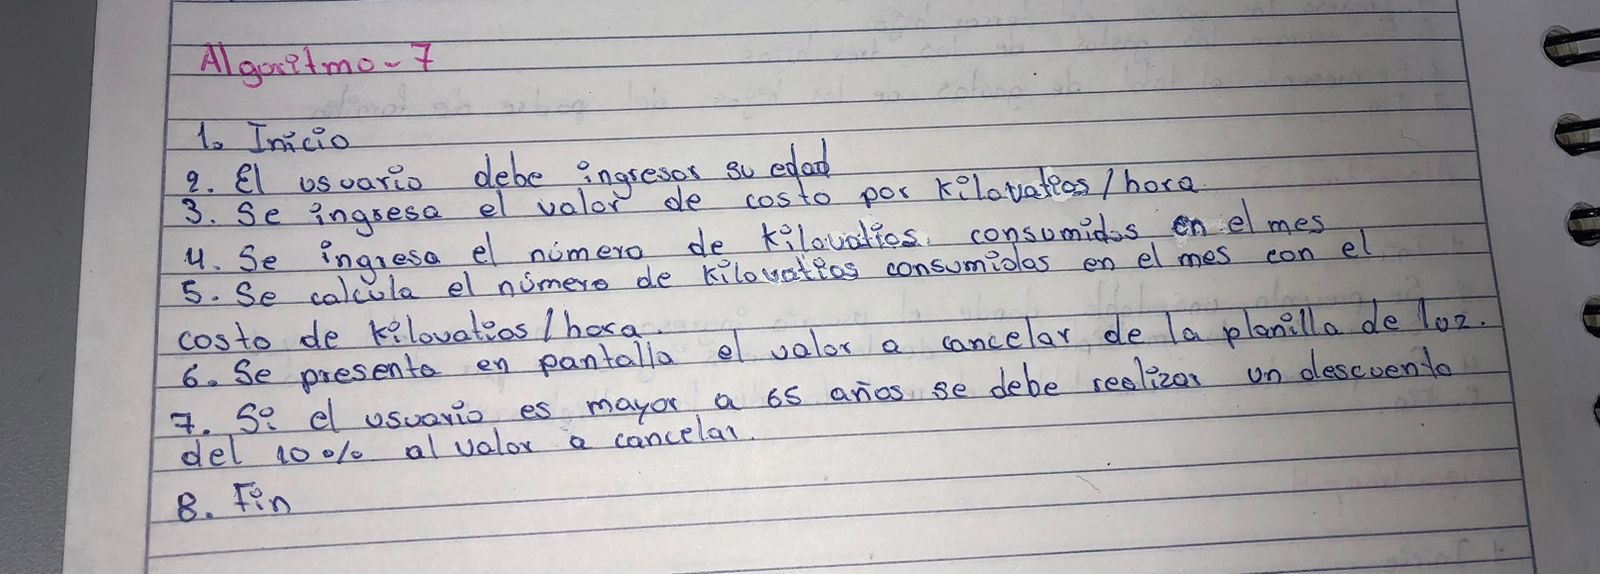 Algoritmo - 7
1. Inicio
2. El usuario debe ingresar su edad
3. Se ingresa el valor de costo por kilovatios/hora
4. Se ingresa el número de kilovatios consumidos en el mes
5. Se calcula el número de kilovatios consumidos en el mes con el
costo de kilovatios/hora.
6. Se presenta en pantalla el valor a cancelar de la planilla de luz.
7. Si el usuario es mayor a 65 años se debe realizar un descuento
del 10% al valor a cancelar.
8. Fin